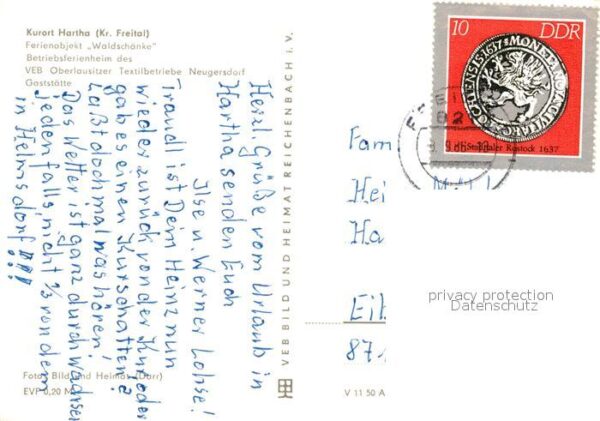 Kurort Hartha (Kr. Freital)
Ferienobjekt „Waldschänke"
Betriebsferienheim des
VEB Oberlausitzer Textilbetriebe Neugersdorf
Gaststätte
Herzl. Grüße vom Urlaub in
Hartha senden Euch
Ilse u. Werner Lohse!
Traudl ist Dein Heinz nun
wieder zurück von der Kur oder
gab es einen Kurschatten?
Laßt doch mal was hören!
Das Wetter ist ganz durchwachsen
jedenfalls nicht ⅓ von dem
in Helmsdorf!!!
Foto: Bild und Heimat (Darr)
EVP 0,20 M
VEB BILD UND HEIMAT REICHENBACH i. V.
V 11 50 A
10 DDR
Stadttaler Rostock 1637
Fam
Hei
Ha
Eib
87
privacy protection
Datenschutz